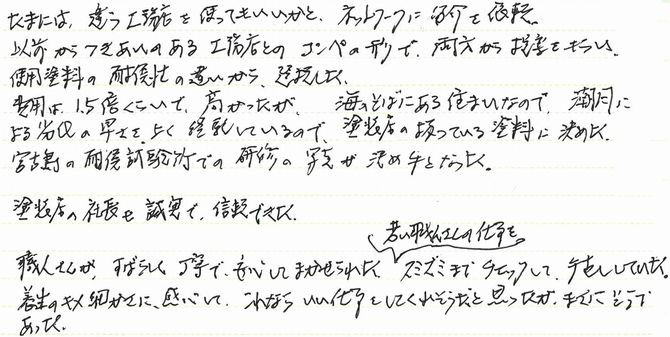 たまには、違う工務店を使ってもいいかと、ネットワークに紹介を依頼。
以前からつきあいのある工務店とのコンペの形で、両方から提案をもらい、
使用塗料の耐候性の違いから、選択した。
費用は1.5倍くらいで、高かったが、海のそばにある住まいなので、潮風に
よる劣化の早さをよく経験しているので、塗装店の扱っている塗料に決めた。
宮古島の耐侯試験所での研修の写真が決め手となった。
塗装店の社長も誠実で、信頼できた。
若い職人さんの仕事を
職人さんが、すばらしく丁寧で、安心してまかせられた スミズミまでチェックして、手直ししていた。
養生のキメ細かさに、感心して、これならいい仕事をしてくれそうだと思ったが、まさにそうで
あった。